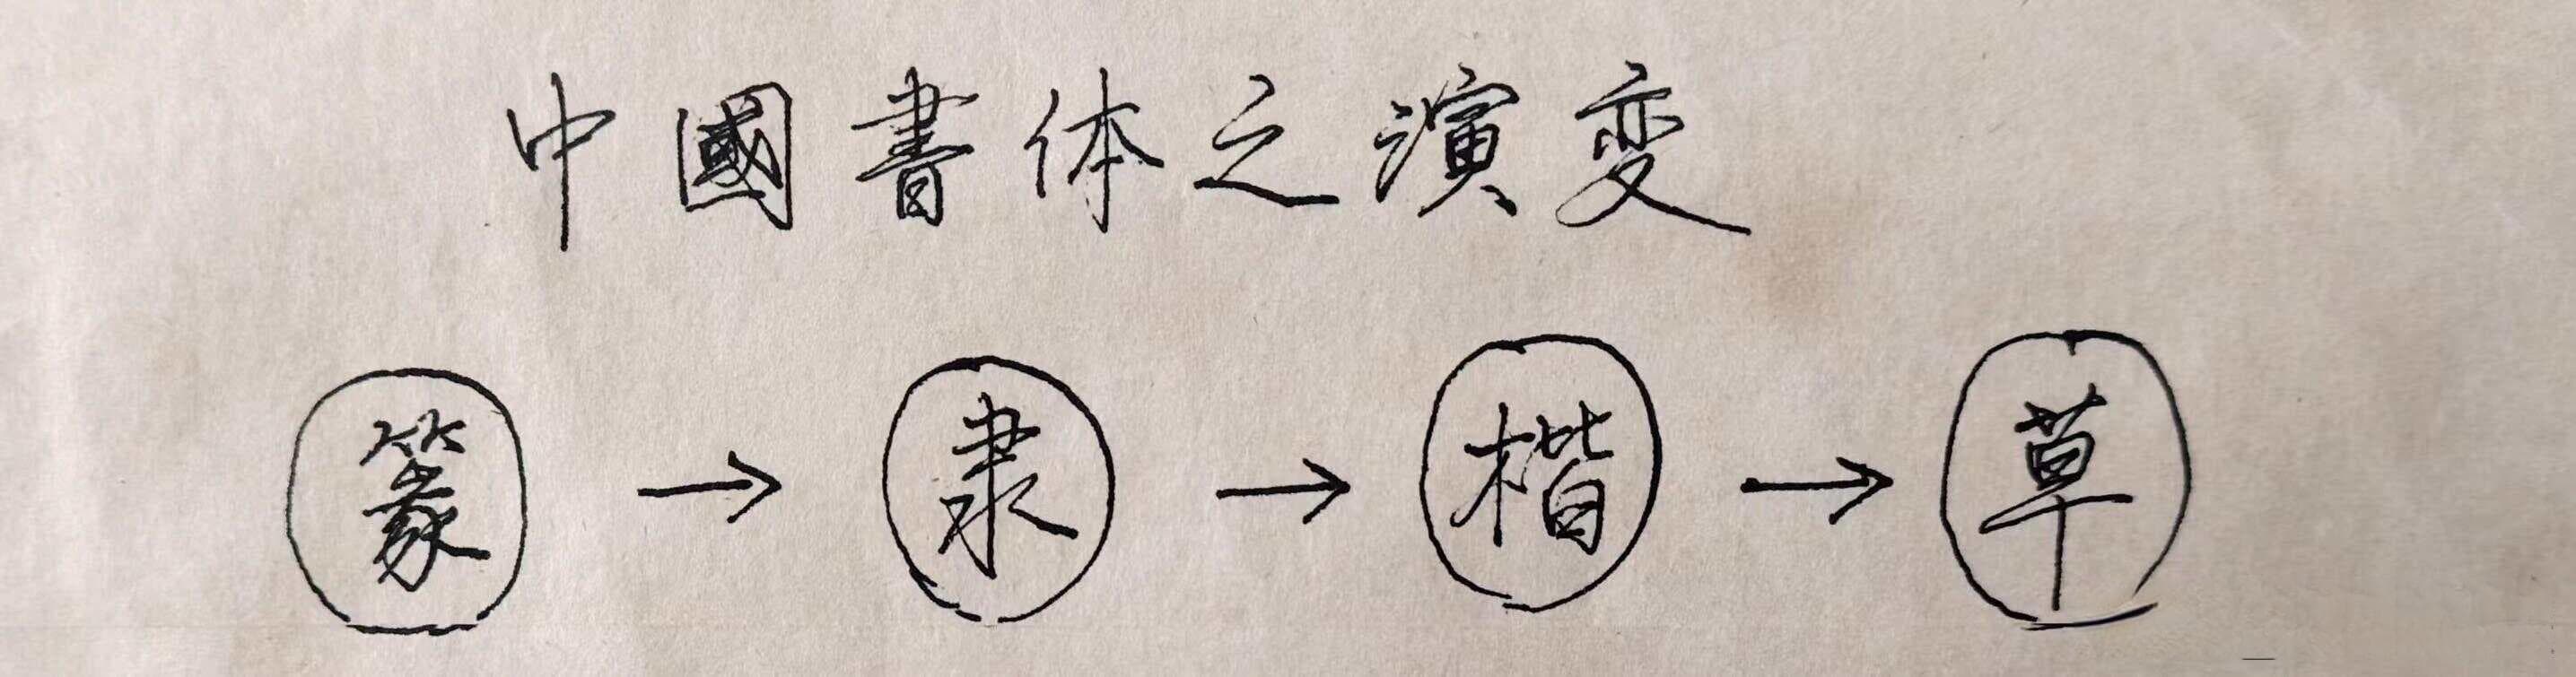 中國書体之演変
篆→隶→楷→草